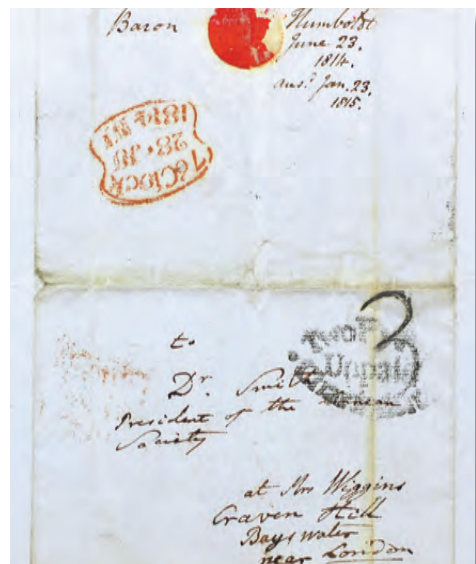 Baron Humboldt
June 23.
1814.
ansd. Jan. 23.
1815.
7 o'Clock
28 • JU
1814 NT
to
Dr. Smith
President of the
Society
Unpaid
at Mrs Wiggins
Craven Hill
Bayswater
near London